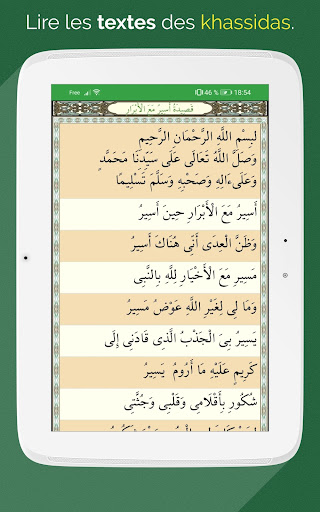 Lire les textes des khassidas.
Free 46 % 18:54
قَصِيدَةُ أَسِيرُ مَعَ الْأَبْرَارِ
بِسْمِ اللَّهِ الرَّحْمَانِ الرَّحِيمِ
وَصَلَّ اللَّهُ تَعَالَى عَلَى سَيِّدِنَا مُحَمَّدٍ
وَعَلَىءَالِهِ وَصَحْبِهِ وَسَلَّمَ تَسْلِيمًا
أَسِيرُ مَعَ الْأَبْرَارِ حِينَ أَسِيرُ
وَظَنَّ الْعِدَى أَنِّى هُنَاكَ أَسِيرُ
مَسِيرِ مَعَ الْأَخْيَارِ لِلَّهِ بِالنَّبِى
وَمَا لِى لِغَيْرِ اللَّهِ عَوْضُ مَسِيرُ
يَسِيرُ بِىَ الْجَذْبُ الَّذِى قَادَنِى إِلَى
كَرِيمٍ عَلَيْهِ مَا أَرُومُ يَسِيرُ
شَكُورٌ بِأَقْلَامِى وَقَلْبِى وَجُثَّتِى